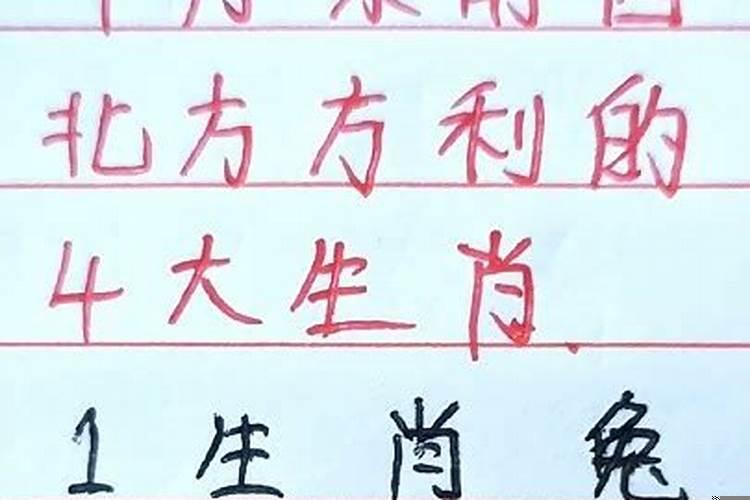 北方方利的
4大生肖.
1生肖兔